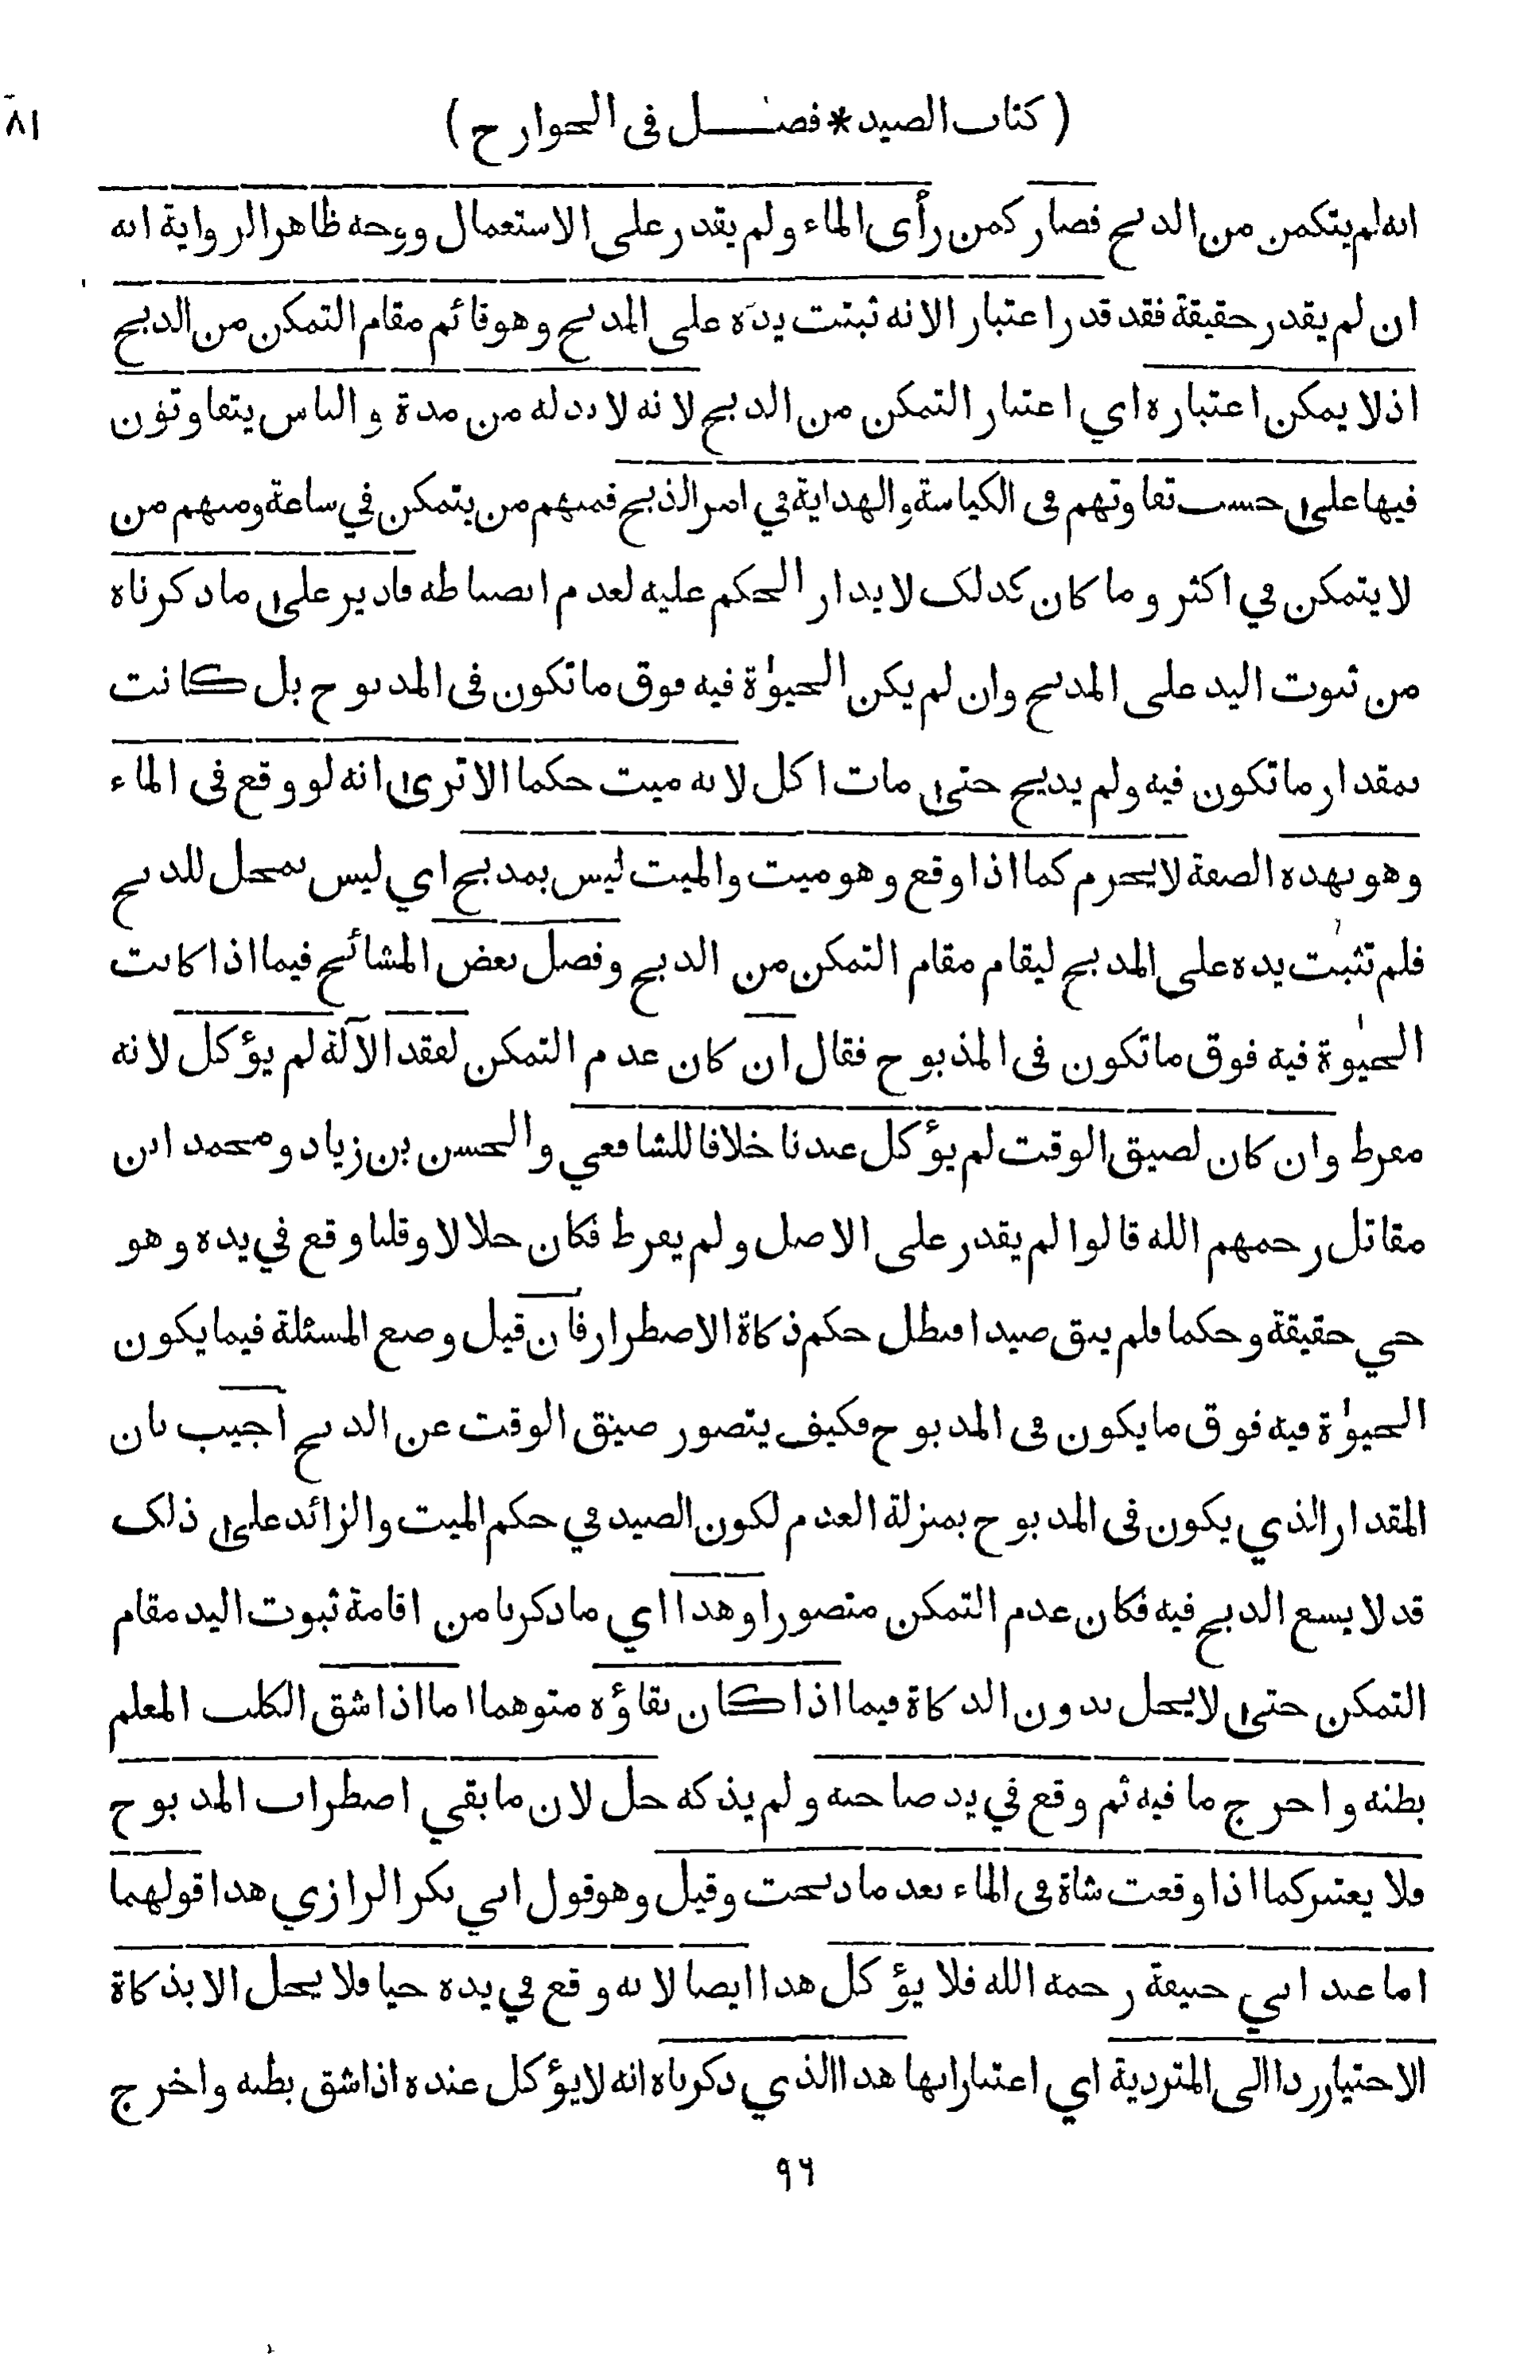 ( كتاب الصيد * فصل فى الجوارح )
٨١
انه لم يتكمن من الذبح فصار كمن رأى الماء ولم يقدر على الاستعمال ووجه ظاهر الرواية انه
ان لم يقدر حقيقة فقد قدر اعتبار الانه ثبتت يده على المذبح وهو قائم مقام التمكن من الذبح
اذ لا يمكن اعتباره اي اعتبار التمكن من الذبح لانه لا بد له من مدة والناس يتفاوتون
فيها على حسب تفاوتهم في الكياسة والهداية في امر الذبح فمنهم من يتمكن في ساعة ومنهم من
لا يتمكن في اكثر وما كان كذلك لا يدار الحكم عليه لعدم انضباطه فادير على ما ذكرناه
من ثبوت اليد على المذبح وان لم يكن الحيوٰة فيه فوق ما تكون فى المذبوح بل كانت
بمقدار ما تكون فيه ولم يذبح حتى مات اكل لانه ميت حكما الا ترى انه لو وقع فى الماء
وهو بهذه الصفة لا يحرم كما اذا وقع وهو ميت والميت ليس بمذبح اي ليس بمحل للذبح
فلم تثبت يده على المذبح ليقام مقام التمكن من الذبح وفصل بعض المشائخ فيما اذا كانت
الحيٰوة فيه فوق ما تكون فى المذبوح فقال ان كان عدم التمكن لفقد الآلة لم يؤكل لانه
مفرط وان كان لضيق الوقت لم يؤكل عندنا خلافا للشافعي والحسن بن زياد ومحمد ابن
مقاتل رحمهم الله قالوا لم يقدر على الاصل ولم يفرط فكان حلالا وقلنا وقع في يده وهو
حي حقيقة وحكما فلم يبق صيدا فبطل حكم ذكاة الاضطرار فان قيل وضع المسئلة فيما يكون
الحيوٰة فيه فوق ما يكون في المذبوح فكيف يتصور ضيق الوقت عن الذبح اجيب بان
المقدار الذي يكون فى المذبوح بمنزلة العدم لكون الصيد في حكم الميت والزائد على ذلك
قد لا يسع الذبح فيه فكان عدم التمكن متصورا وهذا اي ما ذكرنا من اقامة ثبوت اليد مقام
التمكن حتى لا يحل بدون الذكاة فيما اذا كان بقاؤه متوهما اما اذا شق الكلب المعلم
بطنه واخرج ما فيه ثم وقع في يد صاحبه ولم يذكه حل لان ما بقي اضطراب المذبوح
فلا يعتبر كما اذا وقعت شاة فى الماء بعد ما ذبحت وقيل وهو قول ابي بكر الرازي هذا قولهما
اما عند ابي حنيفة رحمه الله فلا يؤكل هذا ايضا لانه وقع في يده حيا فلا يحل الا بذكاة
الاختيار ردا الى المتردية اي اعتبارا بها هذا الذي ذكرناه انه لا يؤكل عنده اذا شق بطنه واخرج
٩٦